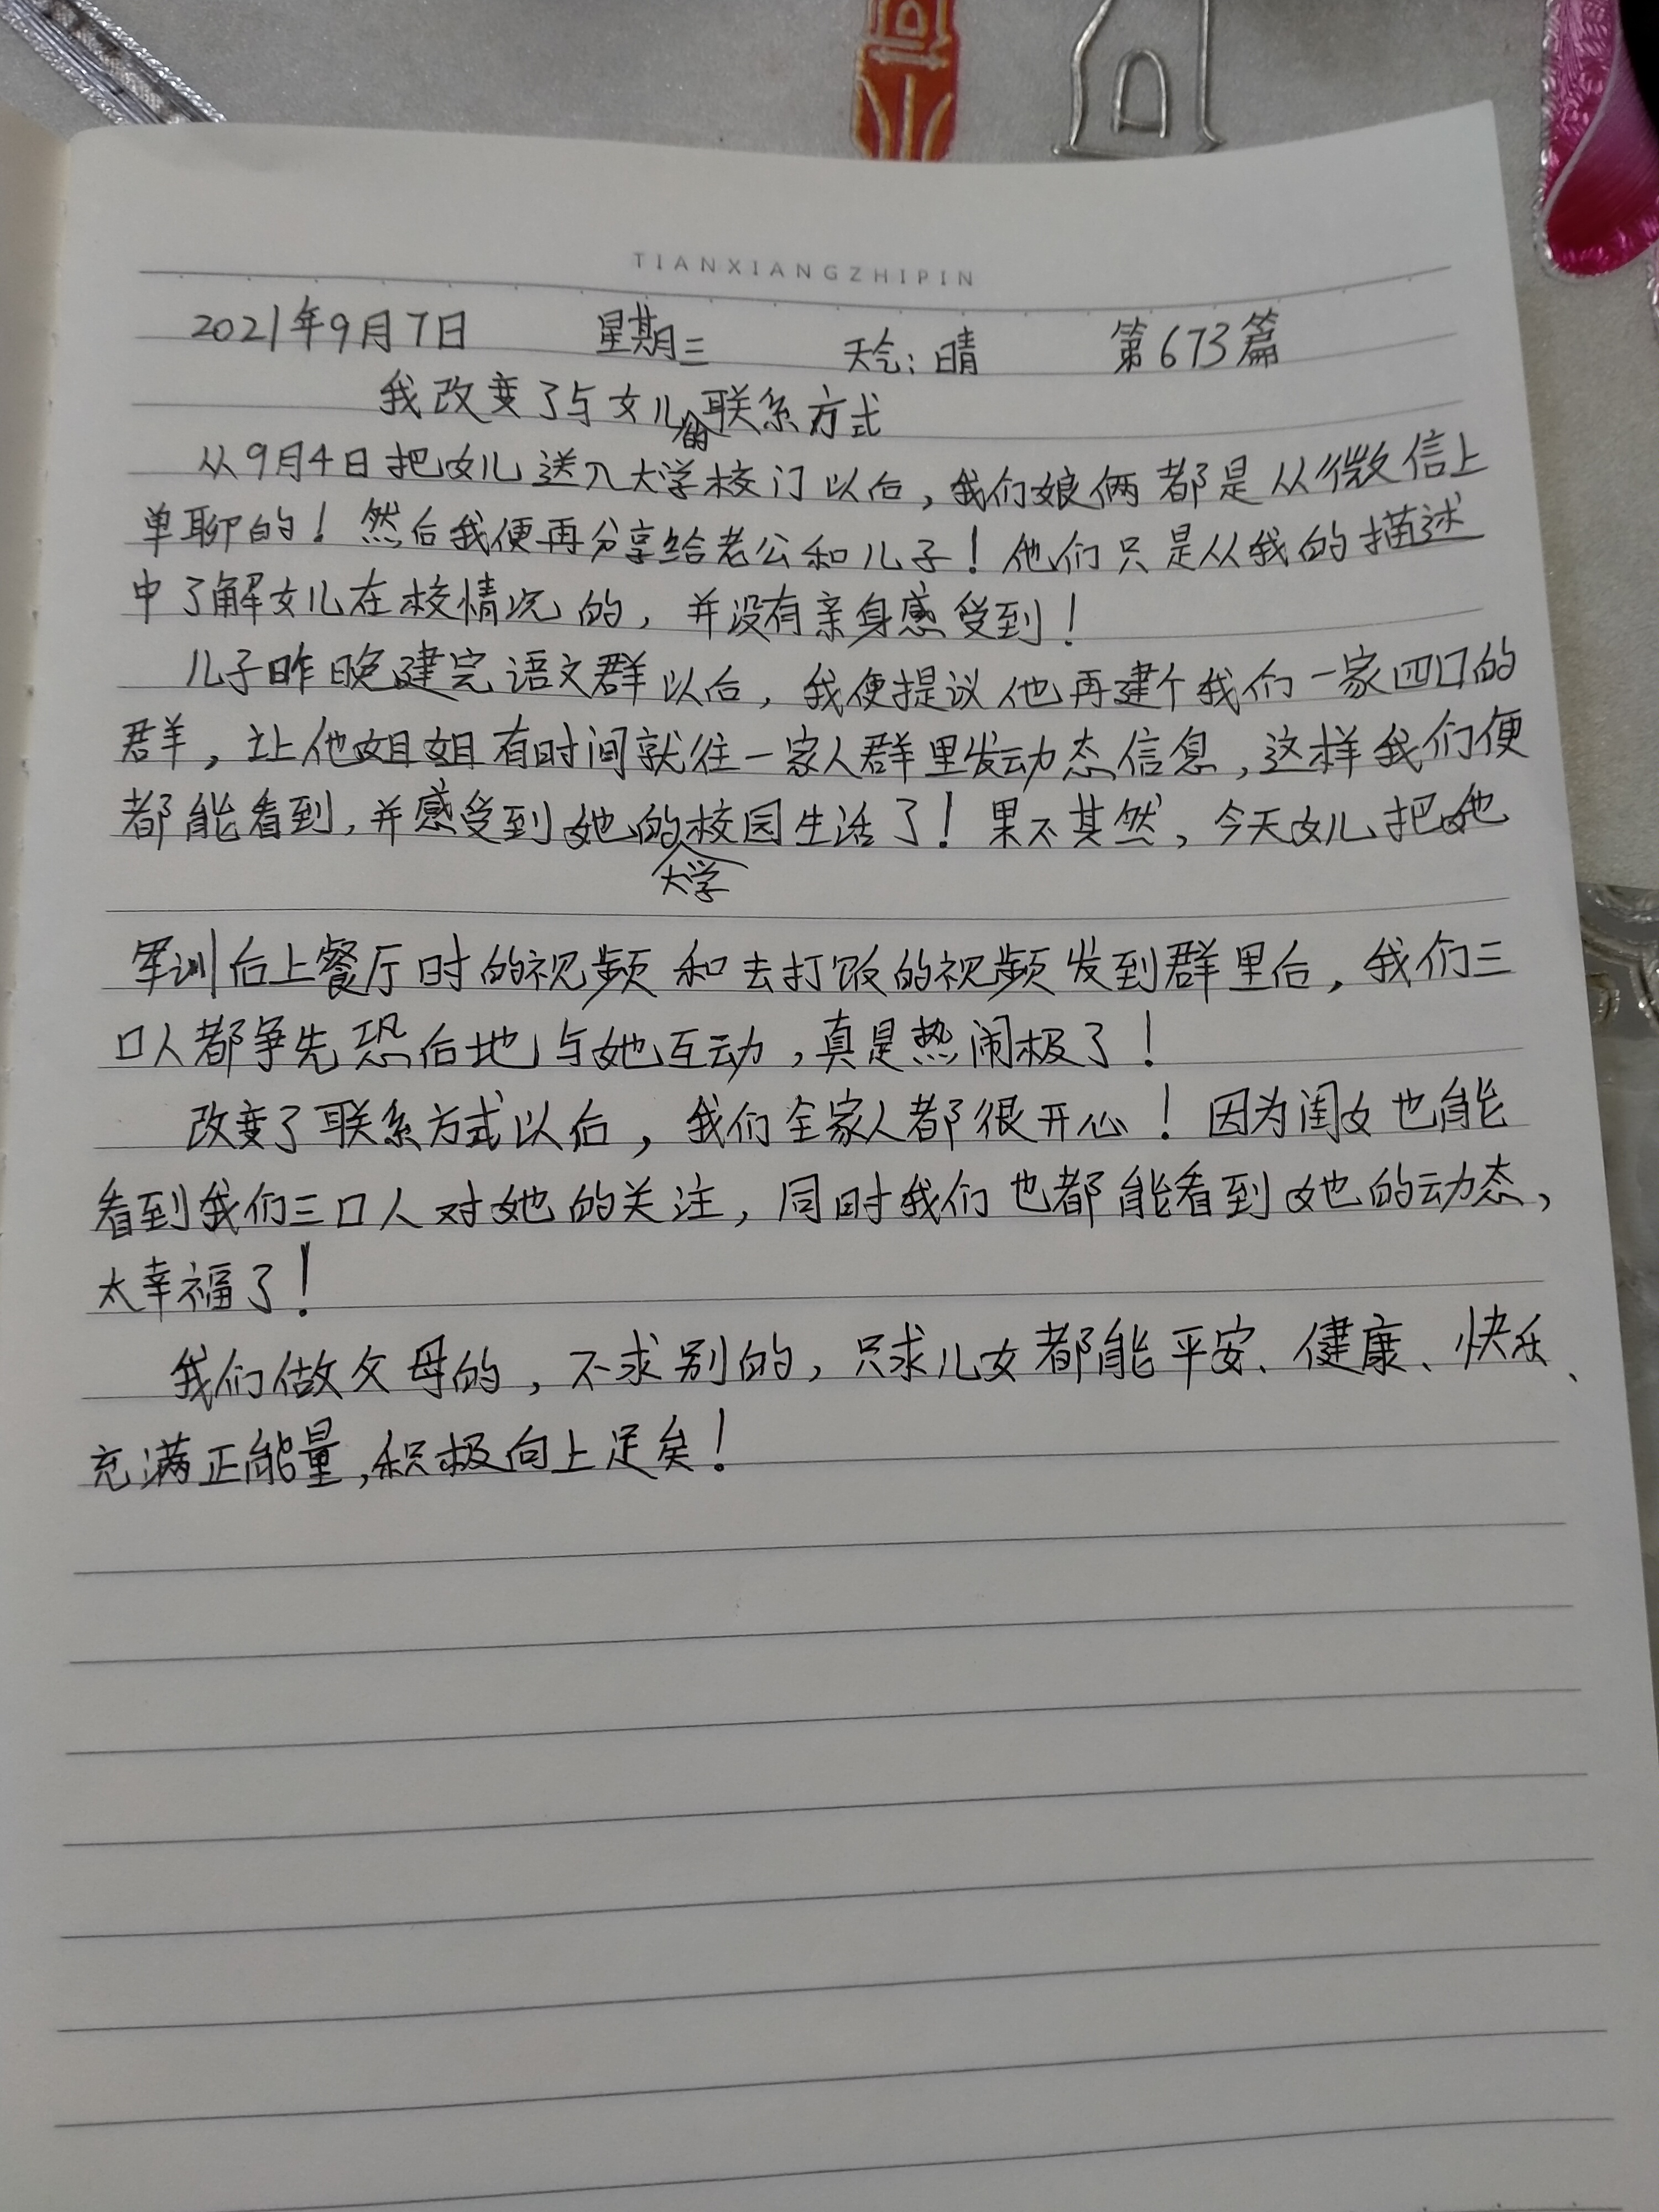 TIANXIANGZHIPIN
2021年9月7日 星期三 天气:晴 第673篇
我改变了与女儿的联系方式
从9月4日把女儿送入大学校门以后,我们娘俩都是从微信上
单聊的!然后我便再分享给老公和儿子!他们只是从我的描述
中了解女儿在校情况的,并没有亲身感受到!
儿子昨晚建完语文群以后,我便提议他再建个我们一家四口的
群,让他姐姐有时间就往一家人群里发动态信息,这样我们便
都能看到,并感受到她的大学校园生活了!果不其然,今天女儿把她
军训后上餐厅时的视频和去打饭的视频发到群里后,我们三
口人都争先恐后地与她互动,真是热闹极了!
改变了联系方式以后,我们全家人都很开心!因为闺女也能
看到我们三口人对她的关注,同时我们也都能看到她的动态,
太幸福了!
我们做父母的,不求别的,只求儿女都能平安、健康、快乐、
充满正能量,积极向上足矣!